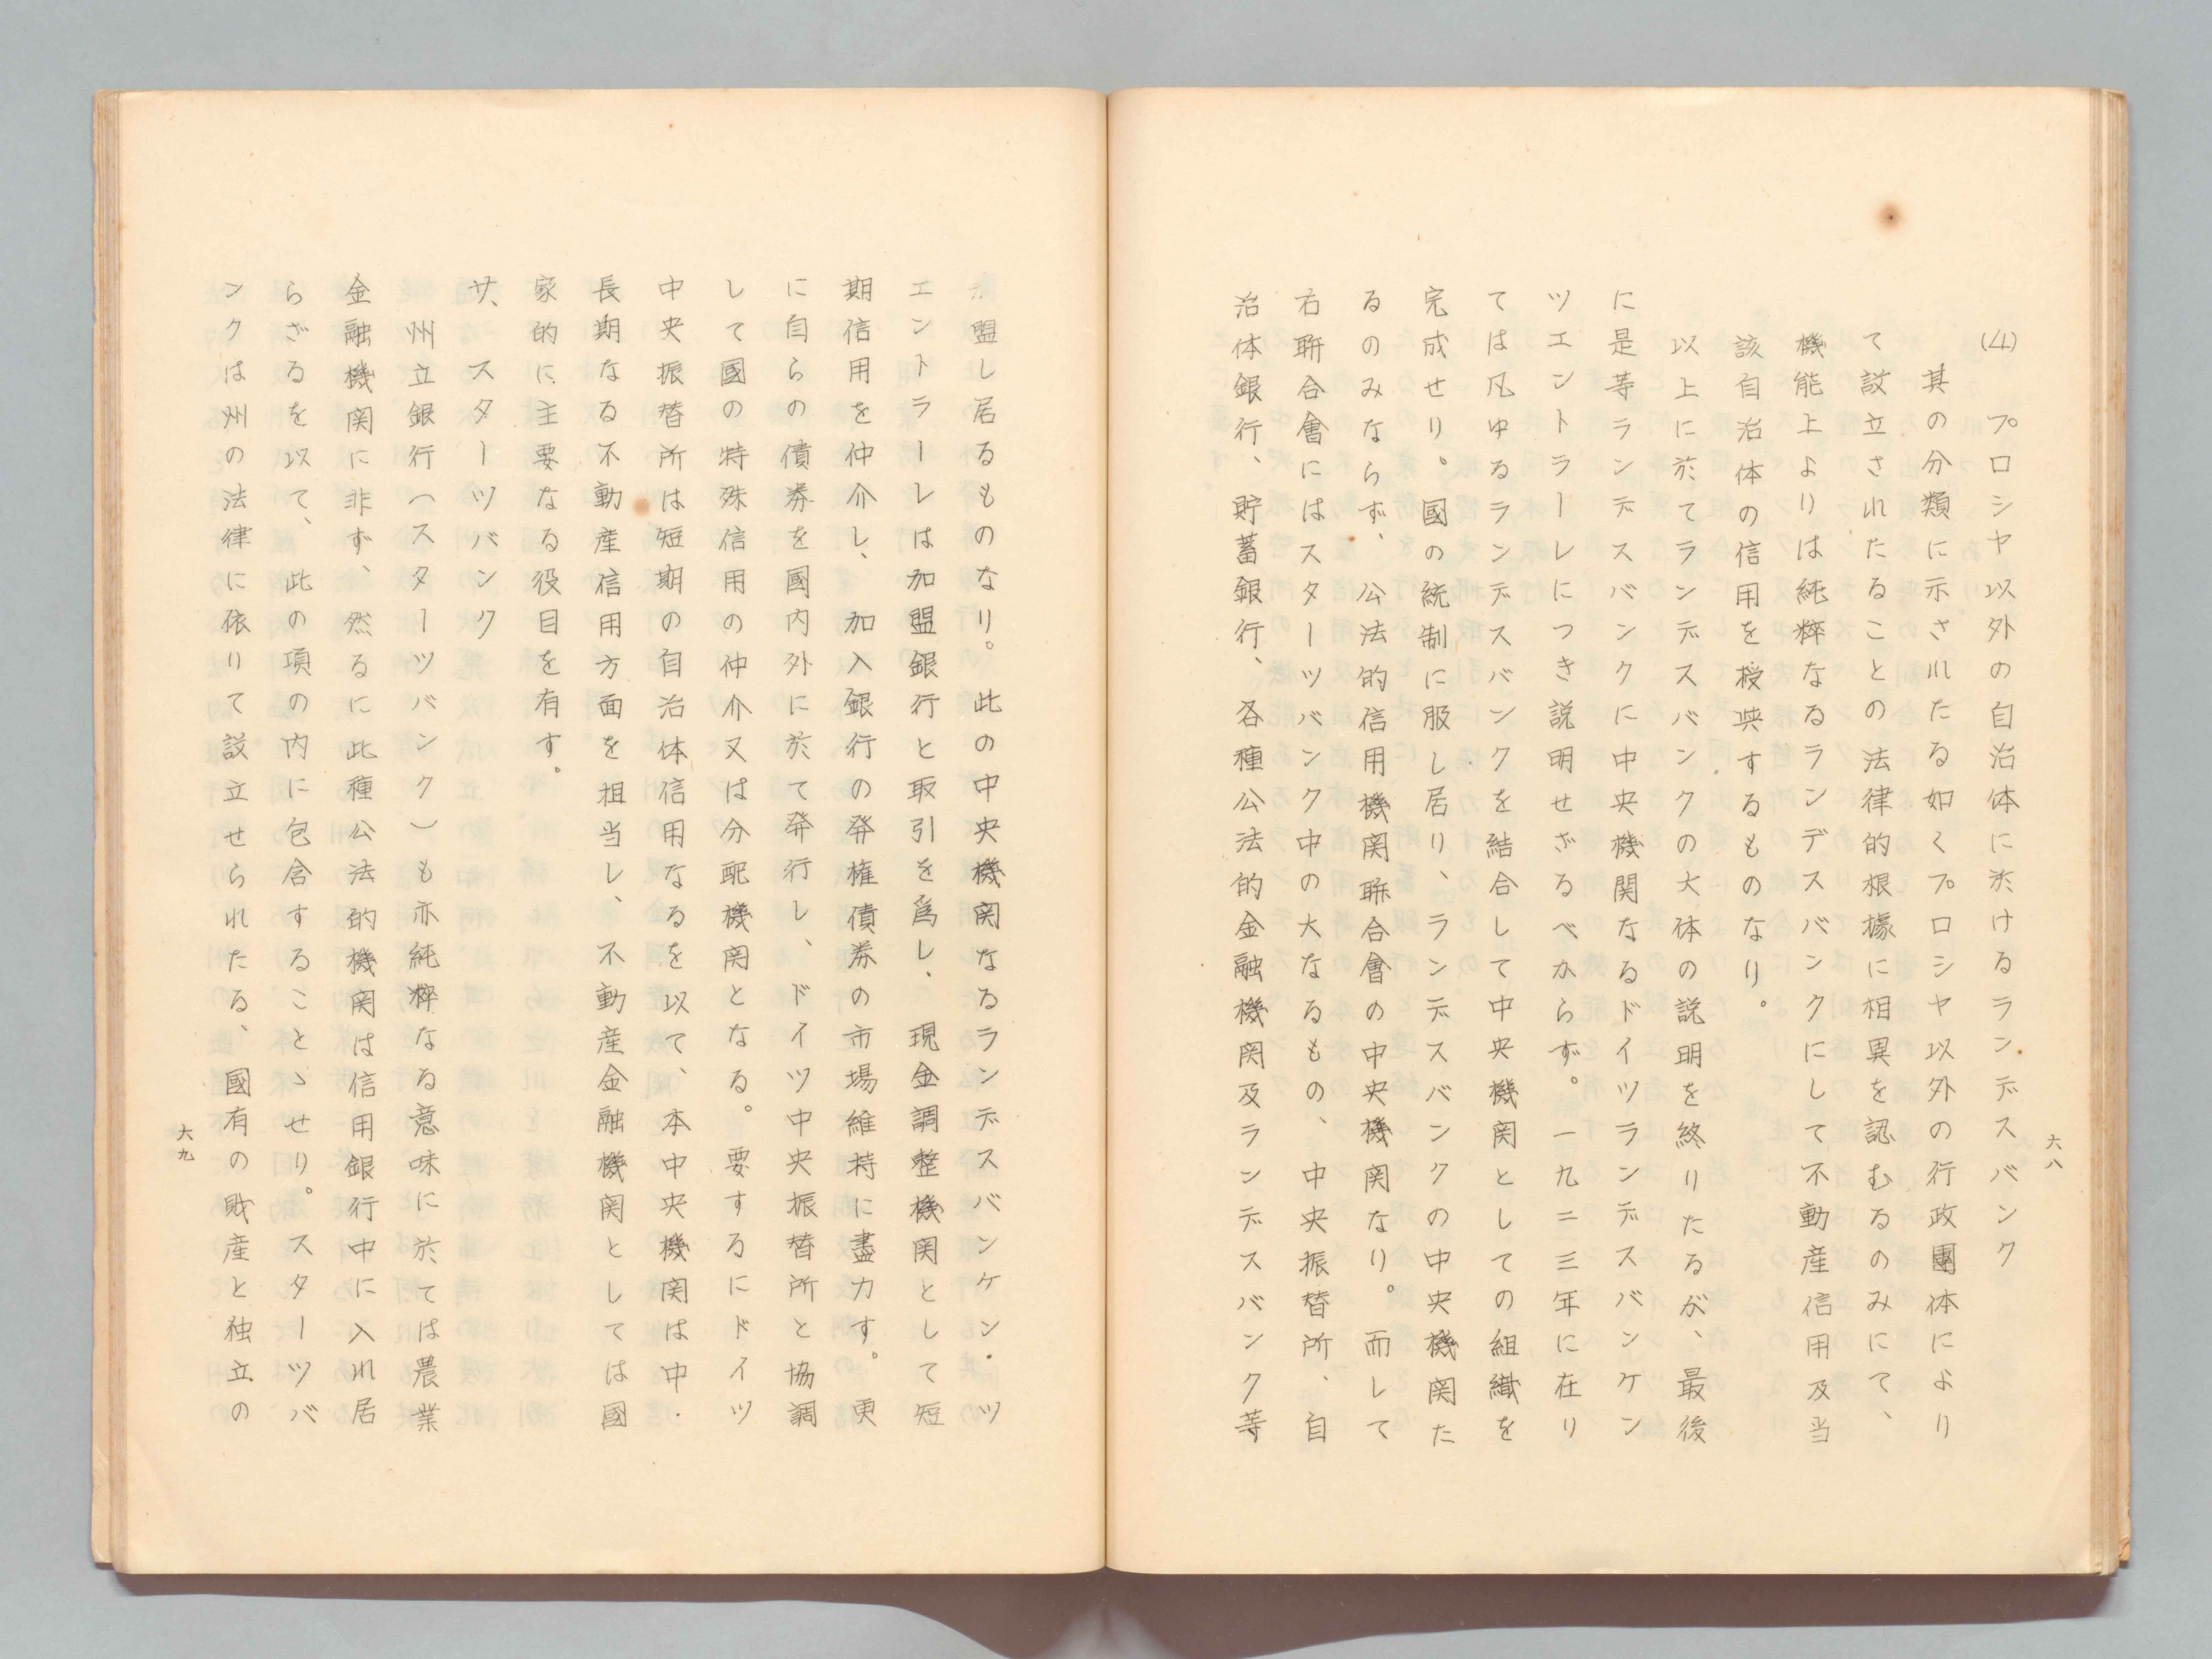 六八
(4) プロシヤ以外の自治体に於けるランデスバンク
其の分類に示されたる如くプロシヤ以外の行政團体により
て設立されたることの法律的根據に相異を認むるのみにて、
機能上よりは純粹なるランデスバンクにして不動産信用及当
該自治体の信用を授與するものなり。
以上に於てランデスバンクの大体の説明を終りたるが、最後
に是等ランデスバンクに中央機関なるドイツランデスバンケン
ツエントラーレにつき説明せざるべからず。一九二三年に在り
ては凡ゆるランデスバンクを結合して中央機関としての組織を
完成せり。國の統制に服し居り、ランデスバンクの中央機関た
るのみならず、公法的信用機関聨合會の中央機関なり。而して
右聨合會にはスターツバンク中の大なるもの、中央振替所、自
治体銀行、貯蓄銀行、各種公法的金融機関及ランデスバンク等
盟し居るものなり。此の中央機関なるランデスバンケン・ツ
エントラーレは加盟銀行と取引を爲し、現金調整機関として短
期信用を仲介し、加入銀行の発権債券の市場維持に盡力す。更
に自らの債券を國内外に於て発行し、ドイツ中央振替所と協調
して國の特殊信用の仲介又は分配機関となる。要するにドイツ
中央振替所は短期の自治体信用なるを以て、本中央機関は中・
長期なる不動産信用方面を担当し、不動産金融機関としては國
家的に主要なる役目を有す。
サ、スターツバンク
州立銀行(スターツバンク)も亦純粹なる意味に於ては農業
金融機関に非ず、然るに此種公法的機関は信用銀行中に入れ居
らざるを以て、此の項の内に包含することゝせり。スターツバ
ンクは州の法律に依りて設立せられたる、國有の財産と独立の
六九